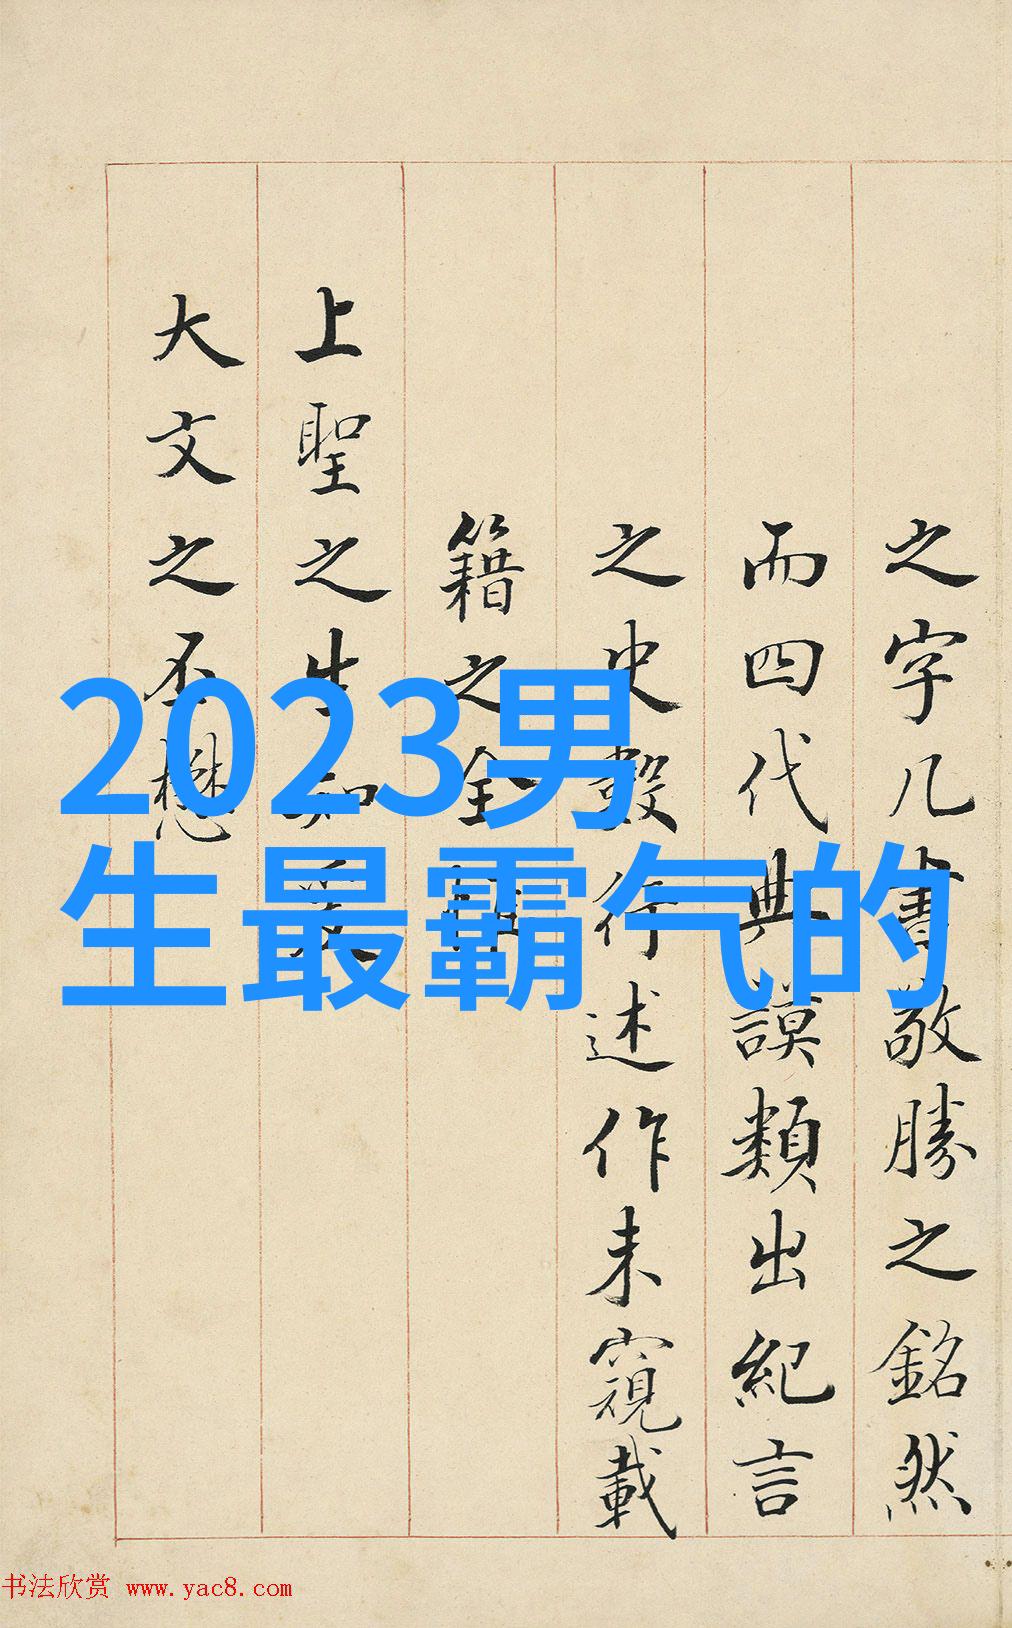 之字几書敬勝之銘然
而四代典謨類出紀言
之史嗀行述作未窺載
籍之全
上聖之生知
大文之丕懋
2023男
生最霸气的
书法欣赏 www.yac8.com